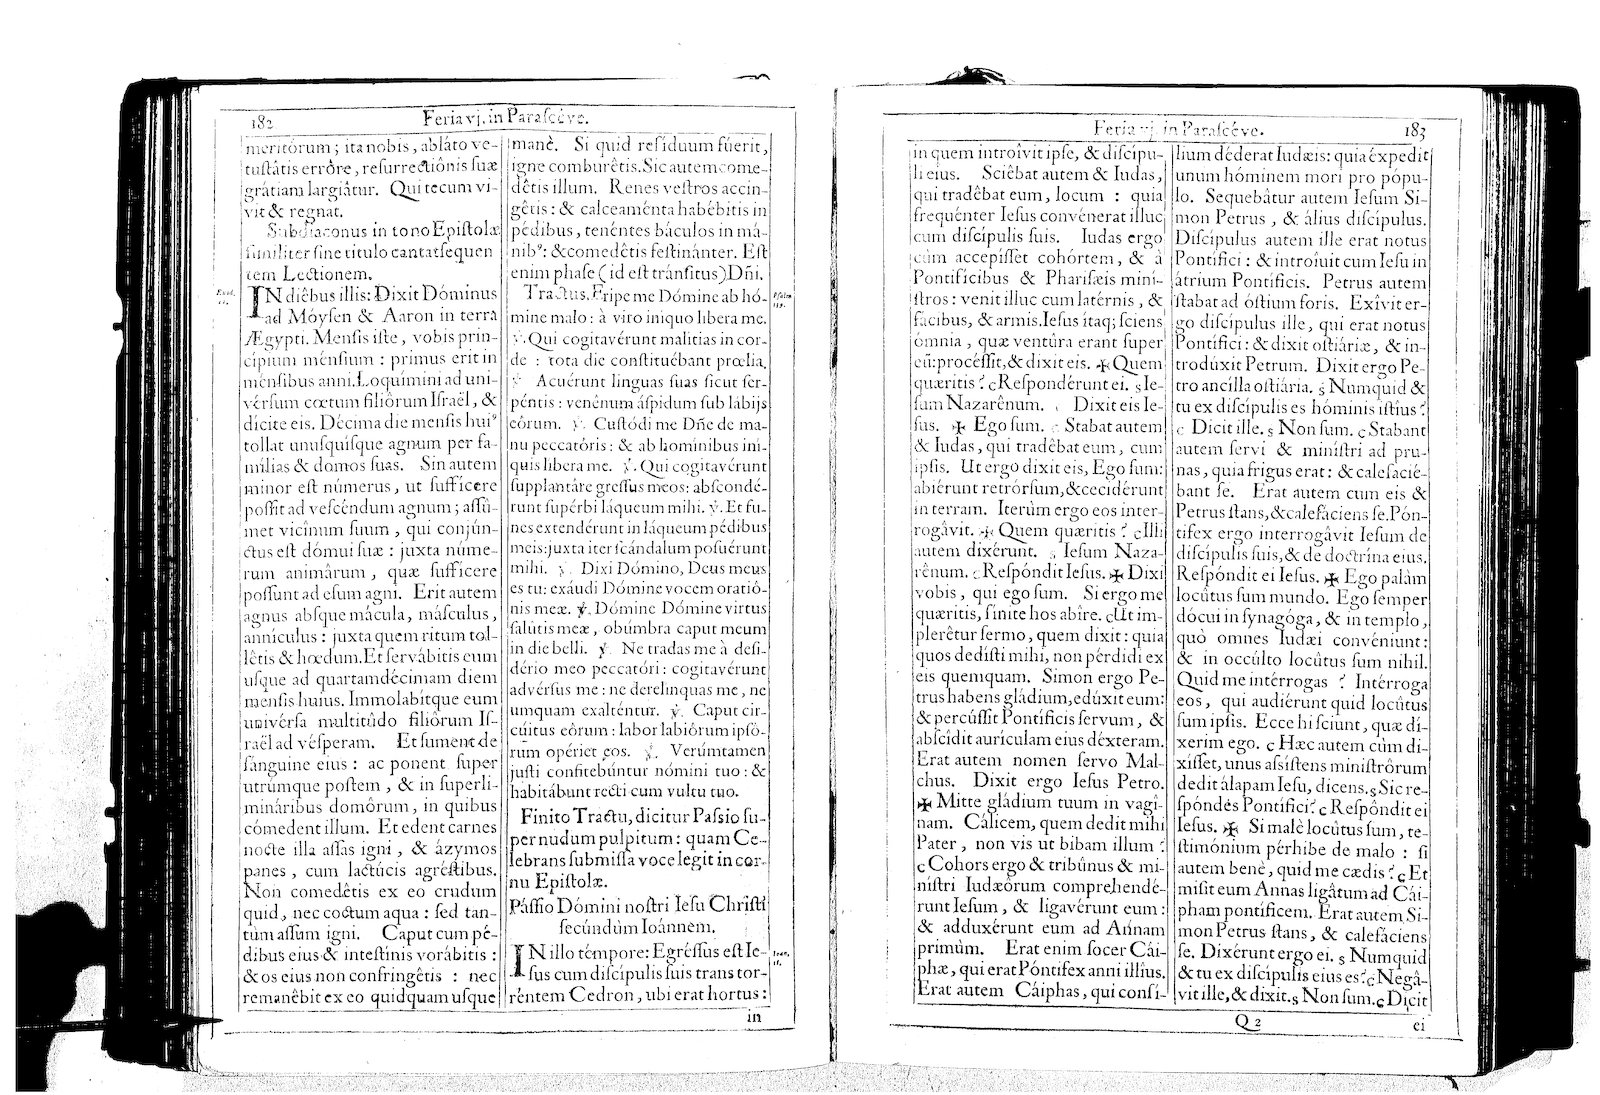 182
Feria vj. in Parascéve.
meritórum; ita nobis, abláto ve-
tuſtátis errôre, reſurrectiônis ſuæ
grátiam largiâtur. Qui tecum vi-
vit & regnat.
Subdiaconus in tono Epiſtolæ
ſimiliter ſine titulo cantat ſequen
tem Lectionem.
IN diêbus illis: Dixit Dóminus
ad Móyſen & Aaron in terra
Ægypti. Menſis iſte, vobis prin-
cípium ménſium: primus erit in
ménſibus anni. Loquímini ad uni-
vérſum cœtum filiôrum Iſraël, &
dícite eis. Décima die menſis huiꝰ
tollat unuſquíſque agnum per fa-
mílias & domos ſuas. Sin autem
minor eſt númerus, ut ſufficere
poſſit ad veſcéndum agnum; aſſû-
met vicînum ſuum, qui conjún-
ctus eſt dómui ſuæ: juxta núme-
rum animârum, quæ ſufficere
poſſunt ad eſum agni. Erit autem
agnus abſque mácula, máſculus,
anniculus: juxta quem ritum tol-
lêtis & hœdum. Et ſervábitis eum
uſque ad quartamdécimam diem
menſis huius. Immolabítque eum
univérſa multitûdo filiôrum Iſ-
raël ad véſperam. Et ſument de
ſánguine eius: ac ponent ſuper
utrúmque poſtem, & in ſuperli-
mináribus domôrum, in quibus
cómedent illum. Et edent carnes
nocte illa aſſas igni, & ázymos
panes, cum lactúcis agréſtibus.
Non comedêtis ex eo crudum
quid, nec coctum aqua: ſed tan-
tùm aſſum igni. Caput cum pé-
dibus eius & inteſtínis vorábitis:
& os eius non confringêtis: nec
remanêbit ex eo quidquam uſque
manè. Si quid reſíduum fúerit,
igne comburêtis. Sic autem come-
dêtis illum. Renes veſtros accin-
gêtis: & calceaménta habébitis in
pédibus, tenéntes báculos in má-
nibꝰ: & comedêtis feſtinánter. Eſt
enim phaſe (id eſt tránſitus) Dñi.
Tractus. Eripe me Dómine ab hó-
mine malo: à viro iniquo libera me.
℣. Qui cogitavérunt malitias in cor-
de: tota die conſtituêbant prœlia.
℣ Acuérunt linguas ſuas ſicut ſer-
péntis: venénum áſpidum ſub lábijs
eórum. ℣. Cuſtódi me Dñe de ma-
nu peccatóris: & ab homínibus iní-
quis libera me. ℣. Qui cogitavérunt
ſupplantáre greſſus meos: abſcondé-
runt ſupérbi láqueum mihi. ℣. Et fu-
nes extendérunt in láqueum pédibus
meis: juxta iter ſcándalum poſuérunt
mihi. ℣. Dixi Dómino, Deus meus
es tu: exáudi Dómine vocem oratió-
nis meæ. ℣. Dómine Dómine virtus
ſalútis meæ, obúmbra caput meum
in die belli. ℣ Ne tradas me à deſi-
dério meo peccatóri: cogitavérunt
advérſus me: ne derelinquas me, ne
umquam exalténtur. ℣. Caput cir-
cúitus eôrum: labor labiórum ipſó-
rum opériet eos. ℣. Verúmtamen
juſti confitebúntur nómini tuo: &
habitábunt recti cum vultu tuo.
Finito Tractu, dicitur Paſsio ſu-
per nudum pulpitum: quam Ce-
lebrans ſubmiſſa voce legit in cor-
nu Epiſtolæ.
Páſſio Dómini noſtri Ieſu Chriſti
ſecúndùm Ioánnem.
IN illo témpore: Egréſſus eſt Ie-
ſus cum diſcípulis ſuis trans tor-
réntem Cedron, ubi erat hortus:
in
Feria vj. in Paraſcéve.
183
in quem introîvit ipſe, & diſcípu-
li eius. Sciêbat autem & Iudas,
qui tradêbat eum, locum: quia
frequénter Ieſus convénerat illuc
cum diſcípulis ſuis. Iudas ergo
cùm accepíſſet cohórtem, & à
Pontifícibus & Phariſæis miní-
ſtros: venit illuc cum latérnis, &
fácibus, & armis. Ieſus ítaq; ſciens
ómnia, quæ ventúra erant ſuper
eũ: proceſſit, & dixit eis. ✠ Quem
quæritis? c Reſpondérunt ei. s Ie-
ſum Nazarênum. c Dixit eis Ie-
ſus. ✠ Ego ſum. c Stabat autem
& Iudas, qui tradêbat eum, cum
ipſis. Ut ergo dixit eis, Ego ſum:
abiérunt retrórſum, & cecidérunt
in terram. Iterùm ergo eos inter-
rogâvit. ✠ Quem quæritis? c Illi
autem dixérunt. s Ieſum Naza-
rênum. c Reſpóndit Ieſus. ✠ Dixi
vobis, qui ego ſum. Si ergo me
quæritis, ſinite hos abîre. c Ut im-
plerêtur ſermo, quem dixit: quia
quos dedíſti mihi, non pérdidi ex
eis quemquam. Simon ergo Pe-
trus habens gládium, edúxit eum:
& percúſſit Pontíficis ſervum, &
abſcídit aurículam eius déxteram.
Erat autem nomen ſervo Mal-
chus. Dixit ergo Ieſus Petro.
✠ Mitte gládium tuum in vagî-
nam. Cálicem, quem dedit mihi
Pater, non vis ut bibam illum?
c Cohors ergo & tribûnus & mi-
níſtri Iudæôrum comprehendé-
runt Ieſum, & ligavérunt eum:
& adduxérunt eum ad Annam
primùm. Erat enim ſocer Cái-
phæ, qui erat Póntifex anni illíus.
Erat autem Cáiphas, qui conſí-
lium déderat Iudæis: quia éxpedit
unum hóminem mori pro pópu-
lo. Sequebâtur autem Ieſum Si-
mon Petrus, & álius diſcípulus.
Diſcípulus autem ille erat notus
Pontífici: & introîuit cum Ieſu in
átrium Pontíficis. Petrus autem
ſtabat ad óſtium foris. Exîvit er-
go diſcípulus ille, qui erat notus
Pontífici: & dixit oſtiáriæ, & in-
trodúxit Petrum. Dixit ergo Pe-
tro ancílla oſtiária. s Numquid &
tu ex diſcípulis es hóminis iſtíus?
c Dicit ille. s Non ſum. c Stabant
autem ſervi & miníſtri ad pru-
nas, quia frigus erat: & calefacié-
bant ſe. Erat autem cum eis &
Petrus ſtans, & calefáciens ſe. Pón-
tifex ergo interrogâvit Ieſum de
diſcípulis ſuis, & de doctrína eius.
Reſpóndit ei Ieſus. ✠ Ego palàm
locûtus ſum mundo. Ego ſemper
dócui in ſynagóga, & in templo,
quò omnes Iudæi convéniunt:
& in occúlto locûtus ſum nihil.
Quid me intérrogas? Intérroga
eos, qui audiérunt quid locûtus
ſum ipſis. Ecce hi ſciunt, quæ dí-
xerim ego. c Hæc autem cùm di-
xíſſet, unus aſsíſtens miniſtrôrum
dedit álapam Ieſu, dicens. s Sic re-
ſpóndes Pontífici? c Reſpôndit ei
Ieſus. ✠ Si malè locûtus ſum, te-
ſtimónium pérhibe de malo: ſi
autem benè, quid me cædis? c Et
miſit eum Annas ligâtum ad Cái-
pham pontíficem. Erat autem Si-
mon Petrus ſtans, & calefáciens
ſe. Dixérunt ergo ei. s Numquid
& tu ex diſcípulis eius es? c Negâ-
vit ille, & dixit. s Non ſum. c Dicit
Q 2
ei